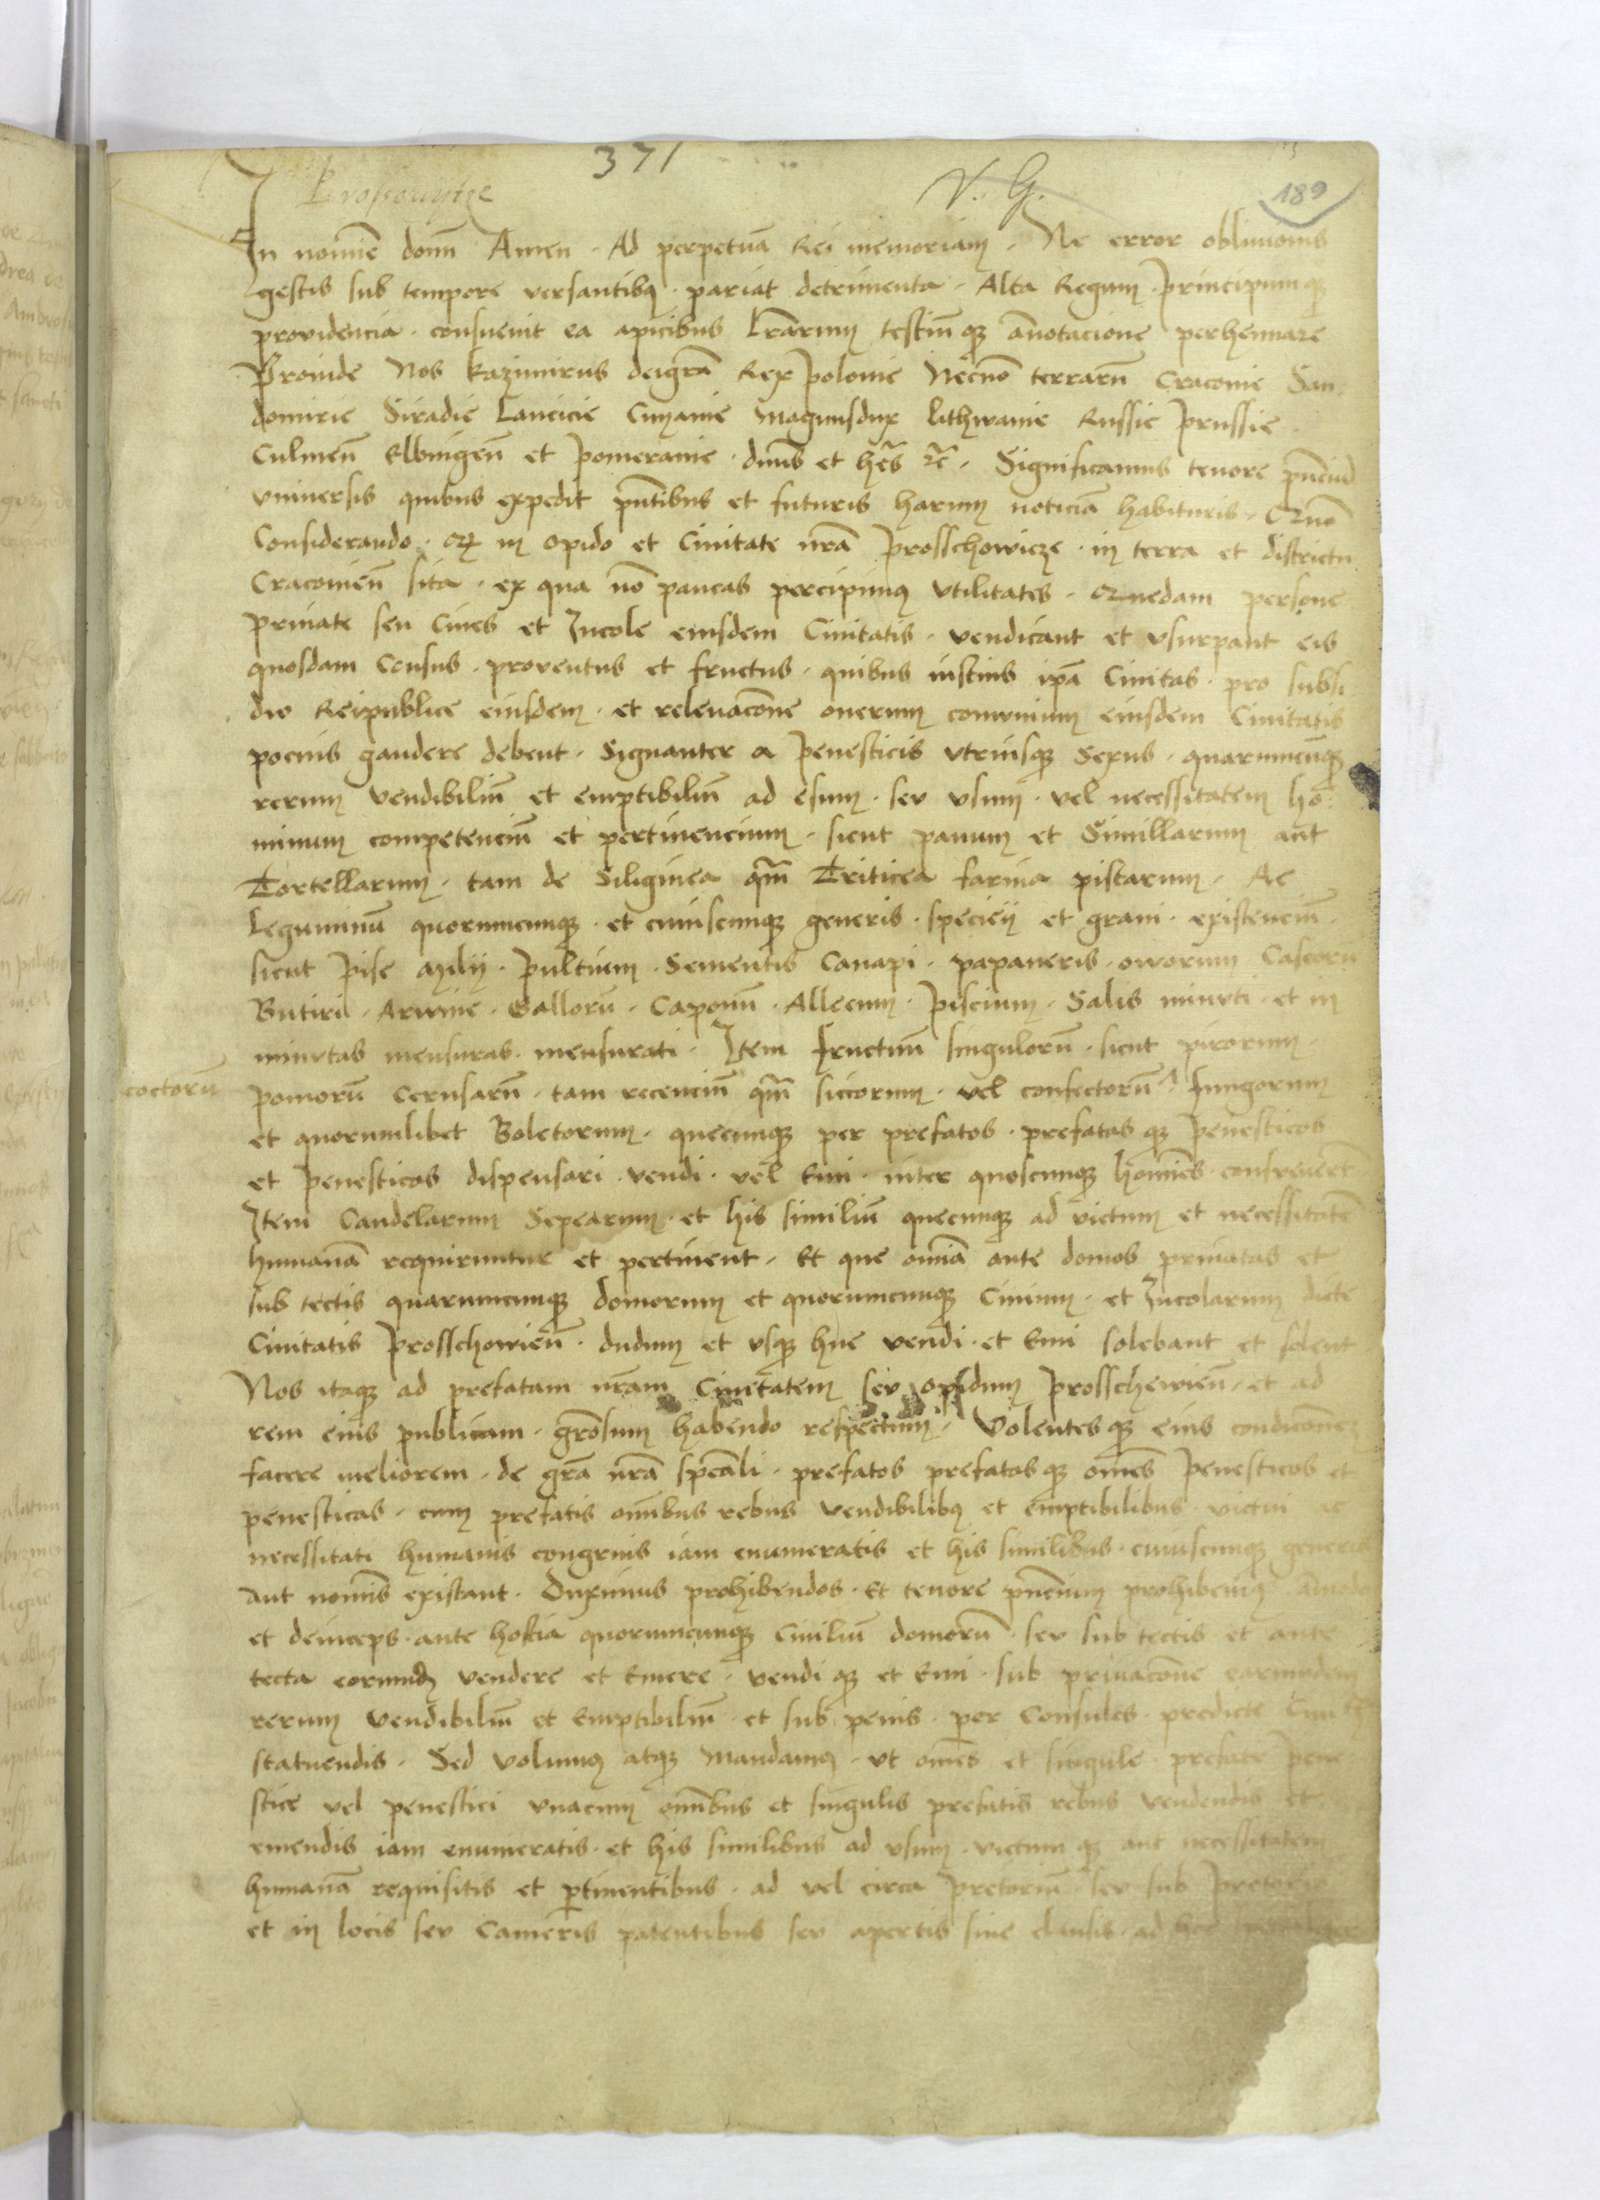 371
Prossouytze
V. G.
189
In nomine domi Amen. Ad perpetuā Rei memoriam. Ne error oblivionis
gestis sub tempore versantibꝰ. pariat detrimenta. Alta Regum. principumqꝫ
providencia. consuevit ea apicibus lrarum testiumqꝫ annotacione perhennare
Proinde Nos Kazimirus deigrā Rex polonie Necnō terrarū Cracovie San
domirie Siradie Lancicie Cuyavie Magnusdux lithwanie Russie prussie
Culmeñ Elbingeñ et pomeranie. dnus et heres etc. Significamus tenore pñciū
universis quibus expedit pñtibus et futuris harum noticiā habituris. Quō
Considerando. qꝫ in opido et Civitate nrā prosschowicze. in terra et districtu
Cracovieñ sita. ex qua nō paucas percipimꝰ utilitates. Quedam persone
private seu Cives et Incole eiusdem Civitatis. vendicant et usurpant eis
quosdam Census. proventus et fructus. quibus iustius ipā Civitas. pro subsi
dio Reipublice eiusdem. et relevacōne onerum comunium eiusdem Civitatis
pocius gaudere debent. Signanter a penesticis utriusqꝫ Sexus. quarumcunqꝫ
rerum vendibiliū et emptibiliū ad esum. seu usum. vel necessitatem ho
minum competenciū et pertinencium. sicut panum et Simillarum aut
Tortellarum. tam de Siliginea qm̄ Triticea farina pistarum. Ac
Leguminū quorumcunqꝫ. et cuiuscunqꝫ generis. speciei et grani. existenciū
sicut pise Milij. pultium. Sementis Canapi. papaveris. ovorum Caseorū
Butiri. Arwine. Gallorū. Caponū. Allecum. piscium. Salis minuti. et in
minutas mensuras. mensurati. Item fructuū singulorū. sicut pirorum
coctorū
pomorū Cerusarū. tam recenciū qm̄ siccorum. vel confectorū. fungorum
et quorumlibet Boletorum. quecunqꝫ per prefatos. prefatasqꝫ penesticos
et penesticas dispensari. vendi. vel Emi. inter quoscunqꝫ homines. consuevert
Item Candelarum Separum. et his similiū quecunqꝫ ad victum et necessitatē
humanā requiruntur et pertinent. Et que omīa ante domos privatas et
sub tectis quarumcunqꝫ domorum et quorumcunqꝫ Civium. et Incolarum dicte
Civitatis prosschowieñ. dudum et usqꝫ huc vendi. et Emi solebant et solent
Nos itaqꝫ ad prefatam nrām Civitatem seu opidum prosschewieñ. et ad
rem eius publicam. grōsum habendo respectum. Volentesqꝫ eius condicionē
facere meliorem. de grā nrā spcāli. prefatos prefatasqꝫ omēs penesticos et
penesticas. cum prefatis omībus rebus vendibilibꝰ et emptibilibus. victui ac
necessitati humanis congruis iam enumeratis et his similibus. cuiuscunqꝫ generis
aut nomīis existant. Duximus prohibendos. Et tenore pñcium prohibemꝰ amodo
et deinceps. ante hostia quorumcunqꝫ Civiliū domorū. seu sub tectis et ante
tecta eorumdē vendere et Emere. vendiqꝫ et Emi. sub privacōne earumdem
rerum vendibiliū et Emptibiliū et sub penis. per Consules. predicte
statuendis. Sed volumꝰ atqꝫ Mandamꝰ. ut omēs et singule. prefate pene
stice vel penestici unacum omībus et singulis prefatis rebus vendendis et
emendis iam enumeratis. et his similibus ad usum. victumqꝫ aut necessitatem
humanā requisitis et ptinentibus. ad vel circa pretoriū seu sub pretorio
et in locis seu Cameris patentibus seu apertis sive clausis. ad